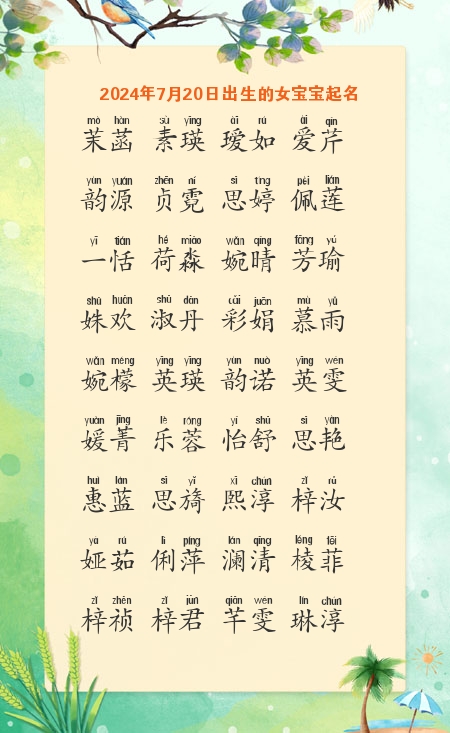 2024年7月20日出生的女宝宝起名
mò hàn sù yīng ài rú ài qín
茉菡 素瑛 瑷如 爱芹
yùn yuán zhēn ní sī tíng pèi lián
韵源 贞霓 思婷 佩莲
yī tián hé miǎo wǎn qíng fāng yú
一恬 荷淼 婉晴 芳瑜
shū huān shū dān cǎi juān mù yǔ
姝欢 淑丹 彩娟 慕雨
wǎn méng yīng yīng yùn nuò yīng wén
婉檬 英瑛 韵诺 英雯
yuàn jīng lè róng yí shū sī yàn
媛菁 乐蓉 怡舒 思艳
huì lán sī yǐ xī chún zǐ rǔ
惠蓝 思旖 熙淳 梓汝
yà rú lì píng lán qīng léng fēi
娅茹 俐萍 澜清 棱菲
zǐ zhēn zǐ jūn qiān wén lín chún
梓祯 梓君 芊雯 琳淳